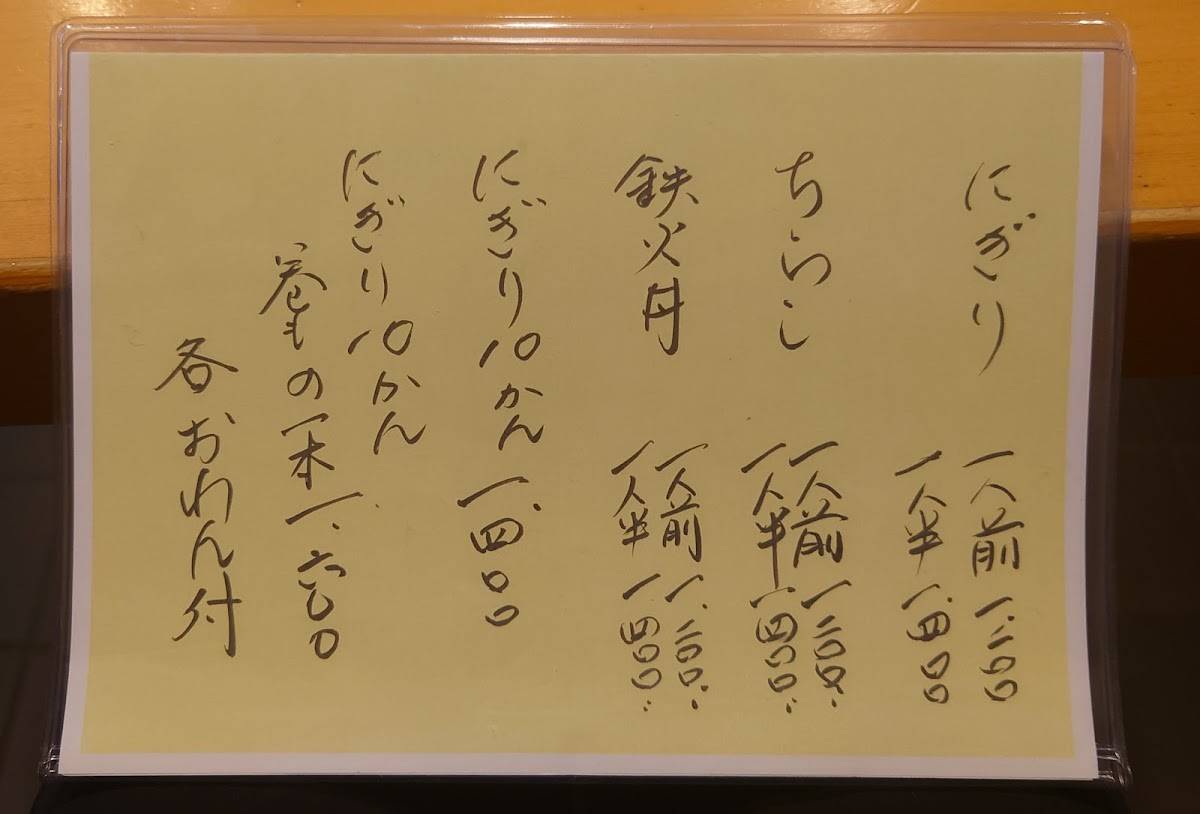 にぎり 一人前 一、二〇〇
一人半 一、四〇〇
ちらし 一人前 一、二〇〇
一人半 一、四〇〇
鉄火丼 一人前 一、二〇〇
一人半 一、四〇〇
にぎり10かん 一、四〇〇
にぎり10かん
巻もの一本 一、六〇〇
各おわん付